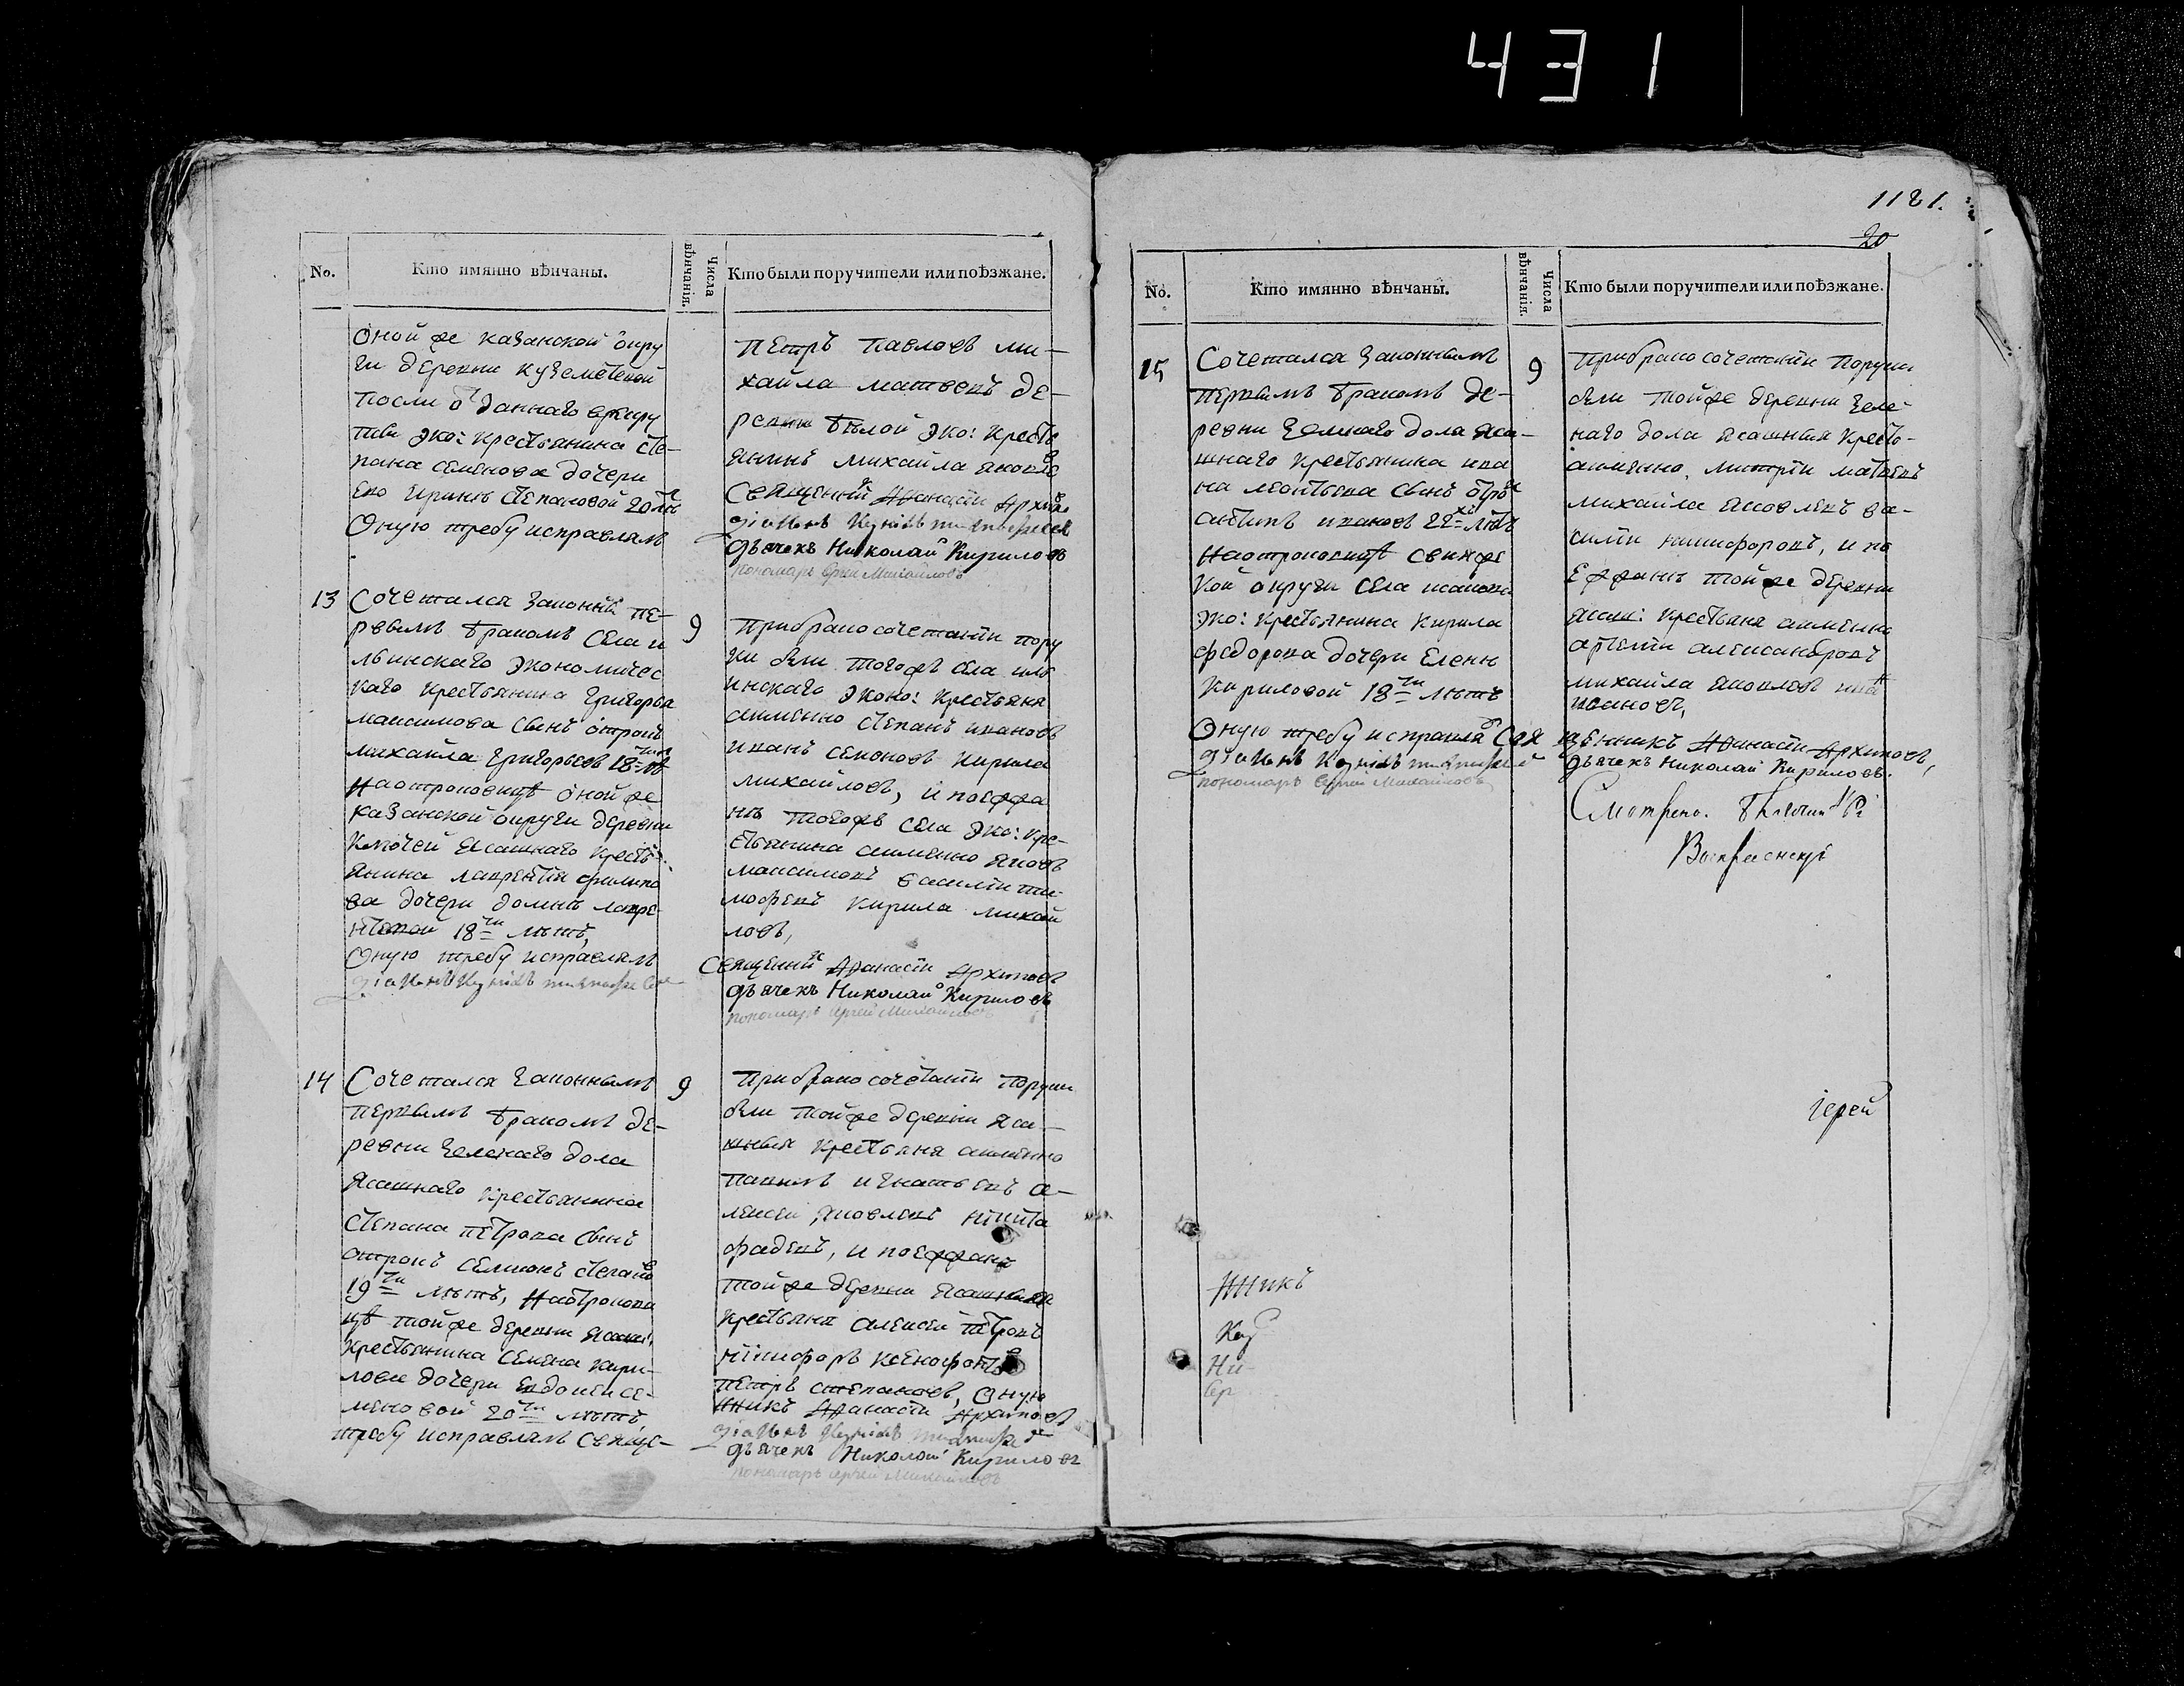 431
1181.
20
No.
Кто имянно вѣнчаны.
Числа вѣнчанія.
Кто были поручители или поѣзжане.
оной же казанской окру
ги деревни
посли отданнаго врекру
ти эко: крестьянина сте-
пана семенова дочери
ево иринѣ степановой 20 лѣ
Оную требу исправлялъ
петръ павловъ ми-
хайла матвеевъ де-
ревни бѣлой эко: кресть
янинъ михайла яковле
Священникъ Афанасій Архипо
діаконъ
дьячекъ Николай Кириловъ
пономарь Сергей Михайловъ
13
Сочетался законнымъ пе-
рвымъ бракомъ села и
льинскаго экономичес
каго крестьянина григорья
максимова сынъ отрокъ
михайла григорьевъ 18 лѣ
на отроковицѣ оной же
казанской округи деревни
ключей ясашнаго кресть-
янина лаврентія филипо
ва дочери домнѣ лавре-
нтьевой 18ти лѣтъ,
Оную требу исправлялъ
діаконъ
9
при брако сочетаніи пору
ки были тогожъ села иль
инскаго эконо: крестьяня
аимянно степанъ ивановъ
иванъ семеновъ кирила
михайловъ, и поежжа
нѣ тогожъ села эко: кре-
стьянина аимянно яковъ
максимовъ василій ти-
мофеевъ кирила михай
ловъ,
Священникъ Афанасій Архиповъ
дьячекъ Николай Кириловъ
пономарь Сергей Михайловъ
14
Сочетался законнымъ
первымъ бракомъ де-
ревни зеленаго дола
ясашнаго крестьянина
степана петрова сынъ
отрокъ семионъ степано
19ти лѣтъ, на отрокови
цѣ той же деревни ясаш:
крестьянина семена кири-
лова дочери евдокеи се-
меновой 20ти лѣтъ,
требу исправлялъ Свяще-
9
при брако сочетаніи поруки
были той же деревни яса-
шныя крестьяня аимянно
павелъ игнатьевъ а-
лексеи яковлевъ никита
фадеевъ, и поежжанѣ
той же деревни ясашныя
крестьяня алексеи петровъ
никифоръ ксенофонтов
петръ степановъ, Оную
нникъ Афанасій Архиповъ
діаконъ
дьячекъ Николай Кириловъ
пономарь Сергей Михайловъ
No.
Кто имянно вѣнчаны.
Числа вѣнчанія.
Кто были поручители или поѣзжане.
15
Сочетался законнымъ
первымъ бракомъ де-
ревни зеленаго дола яса-
шнаго крестьянина ива
на леонтьева сынъ отрок
антипъ ивановъ 22хъ лѣтъ
на отроковицѣ свияж
кой округи села
эко: крестьянина кирила
федорова дочери елены
кириловой 18ти лѣтъ
Оную требу исправлялъ Свя
діаконъ
пономарь Сергей Михайловъ
9
При брако сочетаніи поруки
были той же деревни зеле-
наго дола ясашныя кресть-
аимянно, митрій матвеевъ
михайла яковлевъ ва-
силій никифоровъ, и по
ежжанѣ той же деревни
ясаш: крестьяня аимянно
артемій александровъ
михайла яковлевъ
ивановъ,
щенникъ Афанасій Архиповъ,
дьячекъ Николай Кириловъ.
Смотрено.
Воскресенскій
іерей
нникъ
Куз
Ни-
Сер